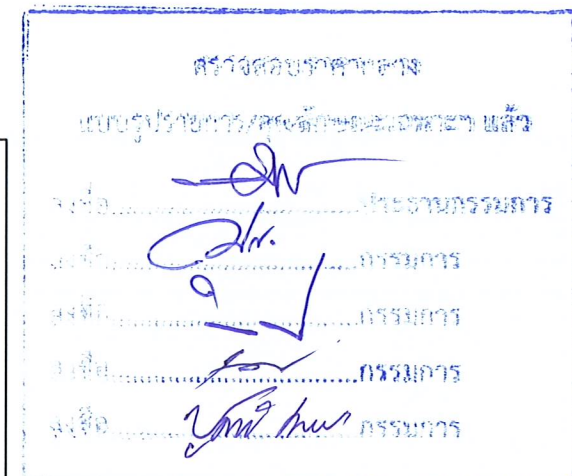 ตรวจสอบราคากลาง
แบบรูปรายการ/คุณลักษณะเฉพาะฯ แล้ว
ลงชื่อ....................ประธานกรรมการ
ลงชื่อ....................กรรมการ
ลงชื่อ....................กรรมการ
ลงชื่อ....................กรรมการ
ลงชื่อ....................กรรมการ